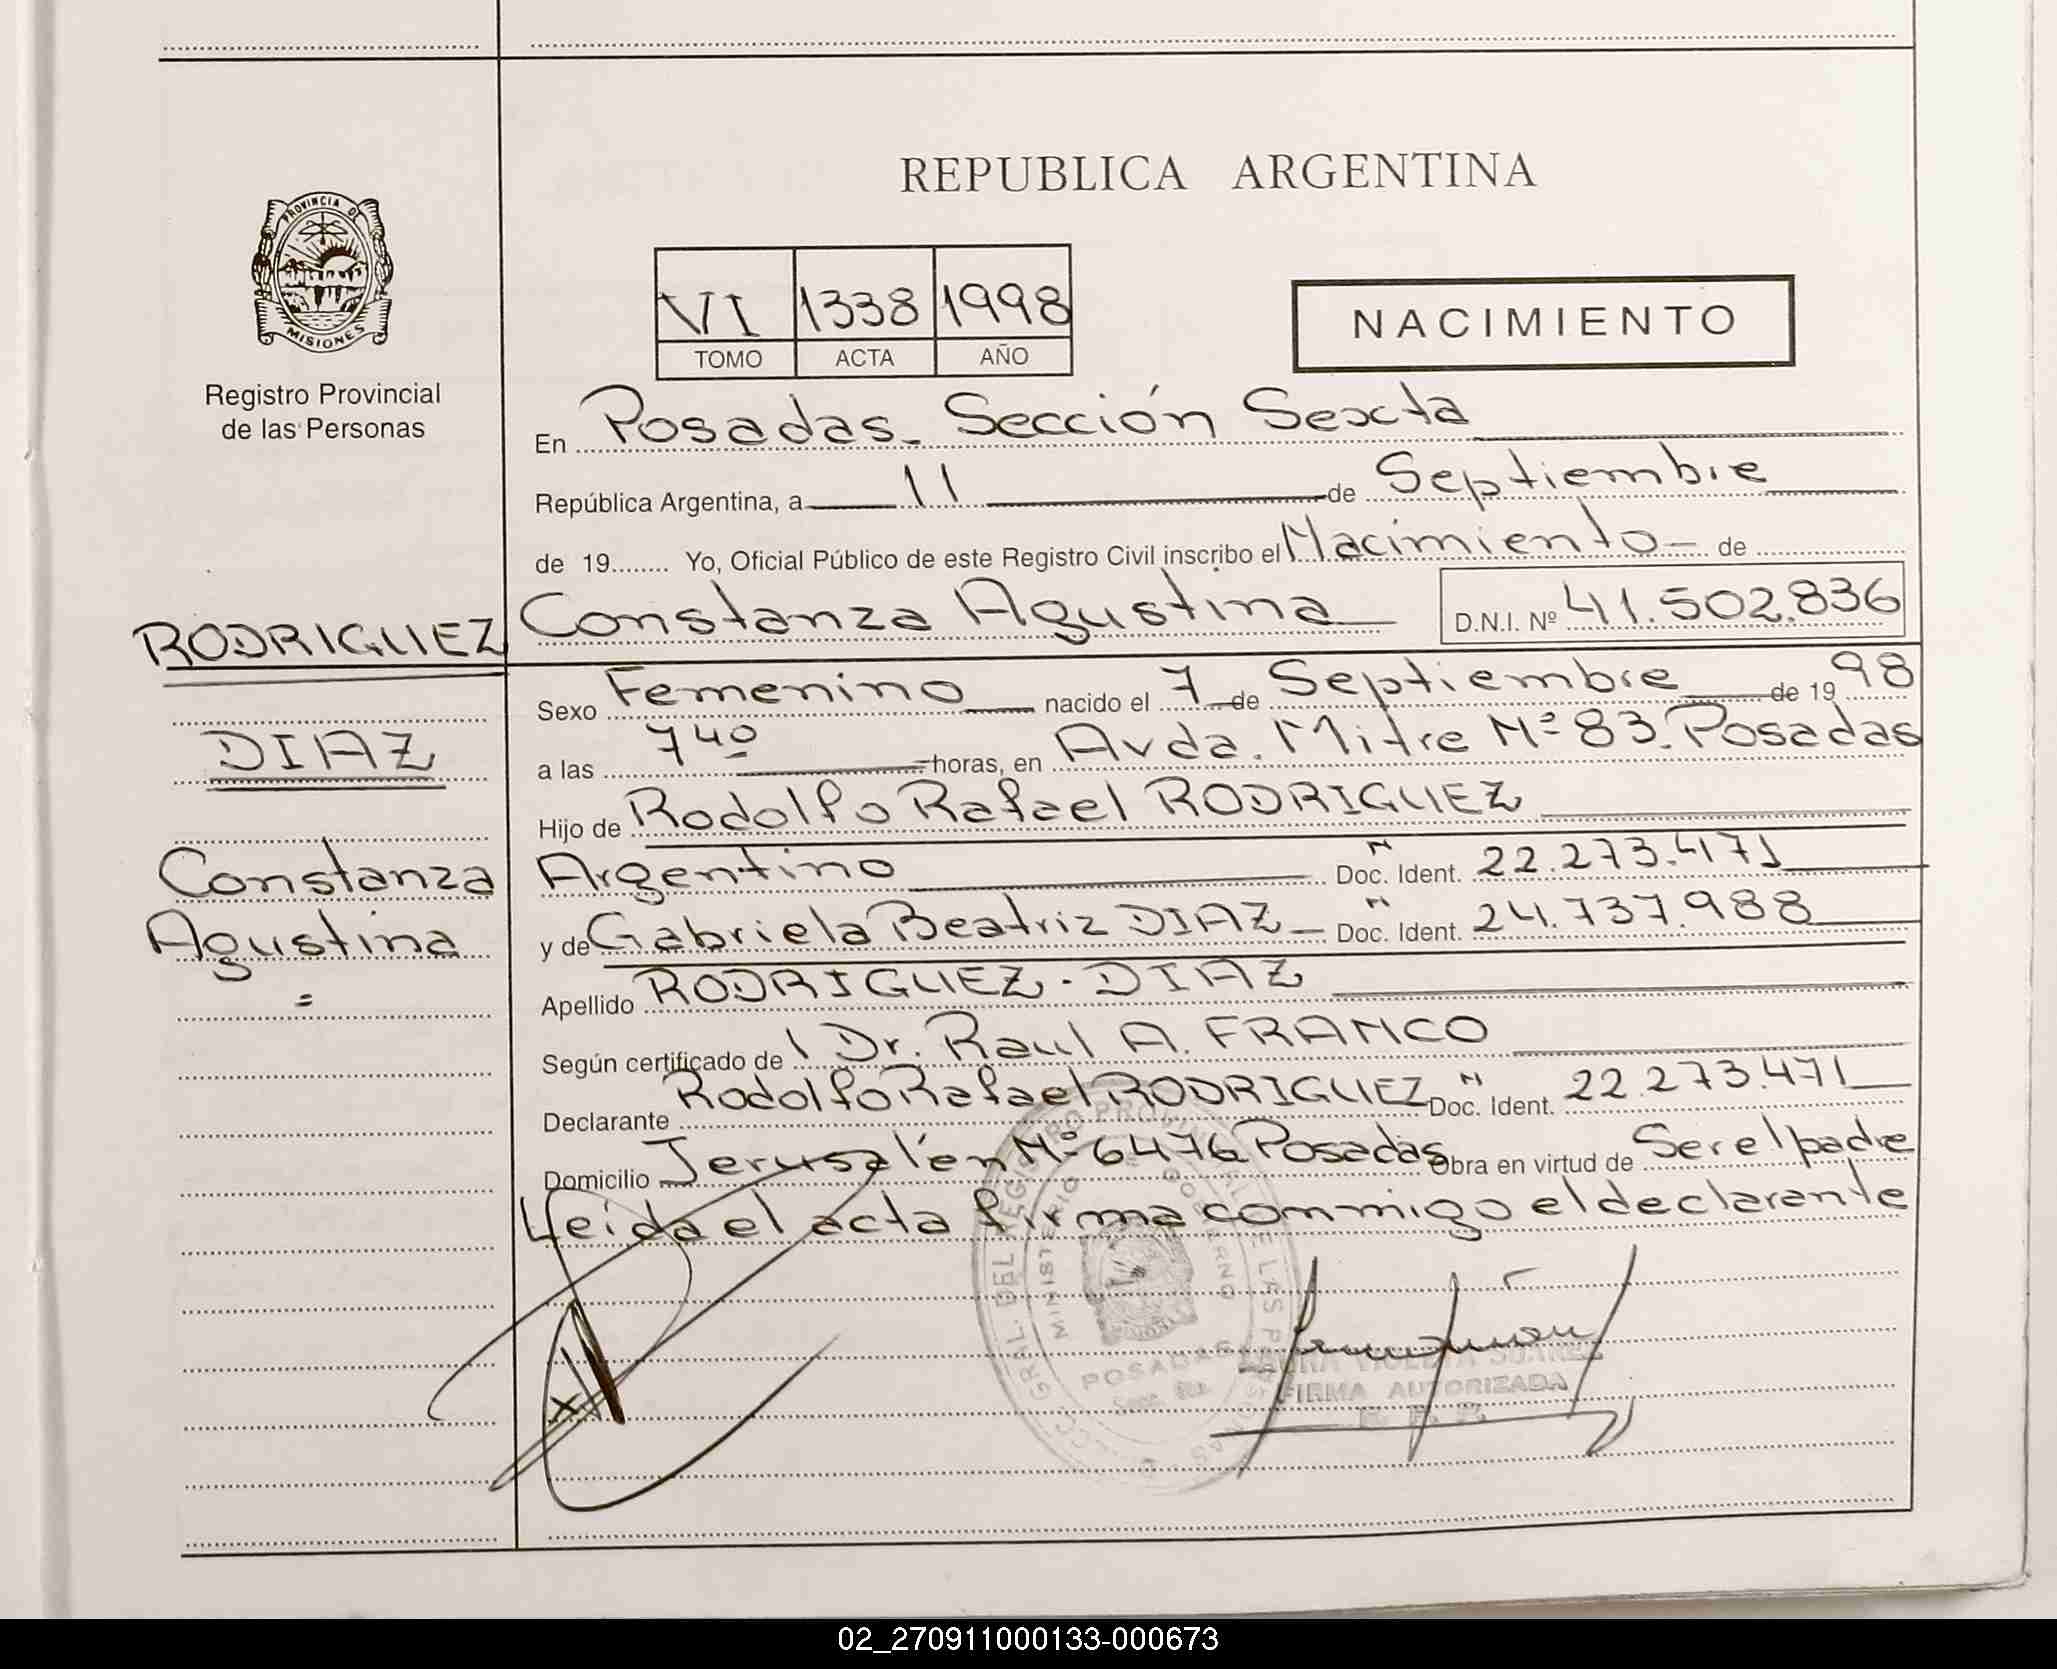 REPUBLICA ARGENTINA
PROVINCIA DE
MISIONES
Registro Provincial
de las Personas
VI 1338 1998
TOMO ACTA AÑO
NACIMIENTO
En Posadas. Sección Sexta
República Argentina, a 11 de Septiembre
de 19........ Yo, Oficial Público de este Registro Civil inscribo el Nacimiento de
RODRIGUEZ
DIAZ
Constanza
Agustina
=
Constanza Agustina D.N.I. Nº 41.502.836
Sexo Femenino nacido el 7 de Septiembre de 19 98
a las 740 horas, en Avda. Mitre Nº 83. Posadas
Hijo de Rodolfo Rafael RODRIGUEZ
Argentino Doc. N Ident. 22.273.471
y de Gabriela Beatriz DIAZ Doc. N Ident. 24.737.988
Apellido RODRIGUEZ - DIAZ
Según certificado de Dr. Raul A. FRANCO
Declarante Rodolfo Rafael RODRIGUEZ Doc. N Ident. 22.273.471
Domicilio Jerusalén Nº 6476 Posadas Obra en virtud de Ser el padre
Leida el acta firma conmigo el declarante
MINISTERIO GOBIERNO
POSADAS
VIOLETA SUAREZ
FIRMA AUTORIZADA
X
02_270911000133-000673